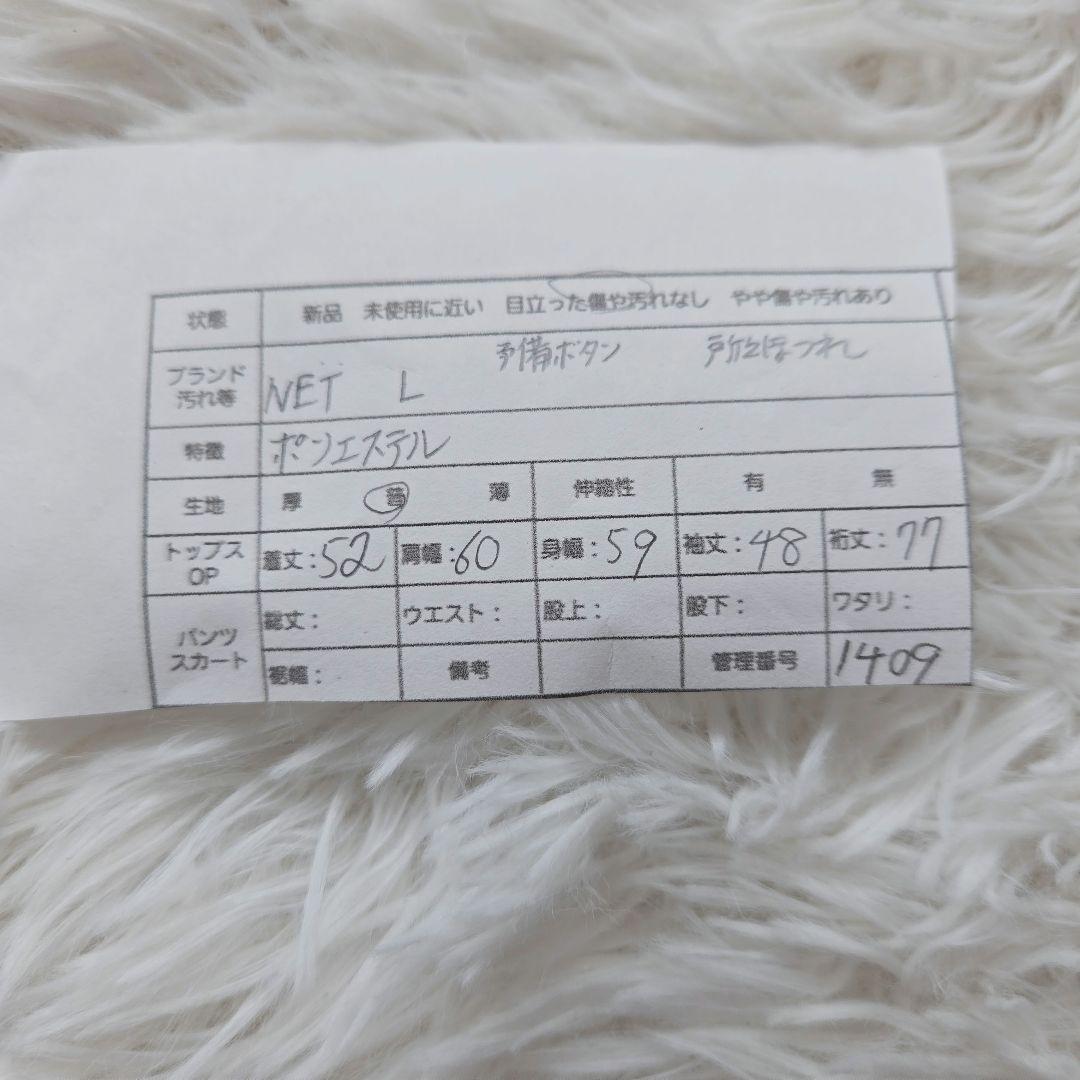 状態 新品 未使用に近い 目立った傷や汚れなし やや傷や汚れあり
ブランド 汚れ等 NET L 予備ボタン 所々ほつれ
特徴 ポリエステル
生地 厚 普 薄 伸縮性 有 無
トップス OP 着丈:52 肩幅:60 身幅:59 袖丈:48 裄丈:77
パンツ スカート 総丈: ウエスト: 股上: 股下: ワタリ:
裾幅: 備考 管理番号 1409